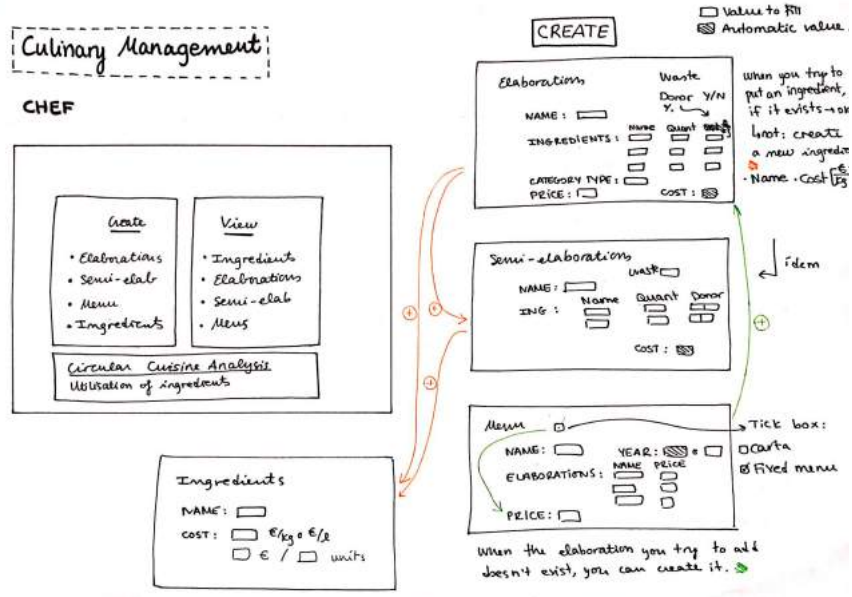 Culinary Management
CHEF
Create
• Elaborations
• Semi-elab
• Menu
• Ingredients
View
• Ingredients
• Elaborations
• Semi-elab
• Menus
Circular Cuisine Analysis
Utilisation of ingredients
Ingredients
NAME:
COST: €/kg o €/l
€ / units
CREATE
Value to fill
Automatic value
Elaborations
Waste
Donor Y/N
%
NAME:
INGREDIENTS: Name Quant
CATEGORY TYPE:
PRICE: COST:
When you try to
put an ingredient,
if it exists → ok
↳ not: create
a new ingredient
• Name • Cost
Semi-elaborations
Waste
NAME:
ING: Name Quant Donor
COST:
idem
Menu
NAME: YEAR: o
ELABORATIONS: NAME PRICE
PRICE:
Tick box:
Carta
Fixed menu
When the elaboration you try to add
doesn't exist, you can create it.